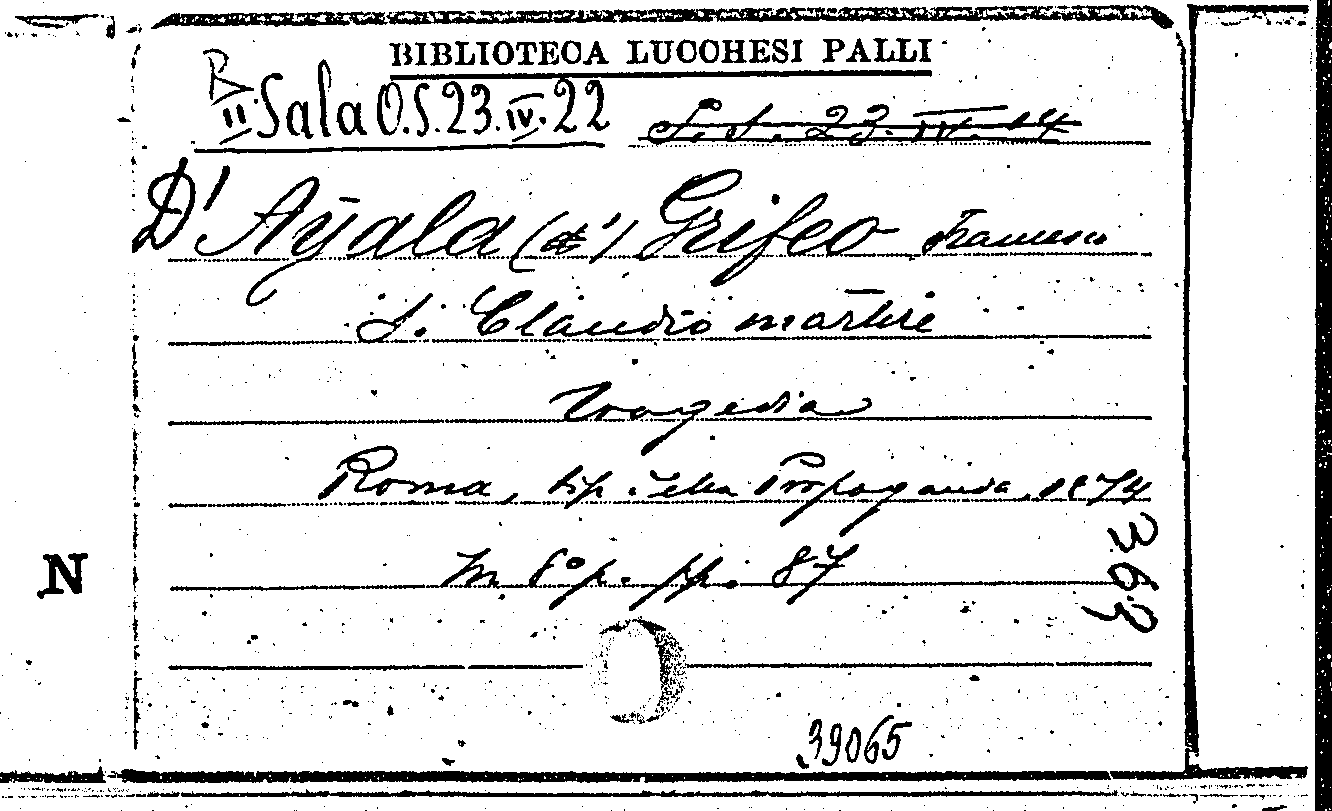 BIBLIOTECA LUCCHESI PALLI
B
II Sala O.S.23.IV.22 S.S. 23.IV.14
D'Ayala (d') Grifeo Francesco
S. Claudio martire
tragedia
Roma, tip. della Propaganda, 1874
In 8°p. pp. 87
363
N
39065